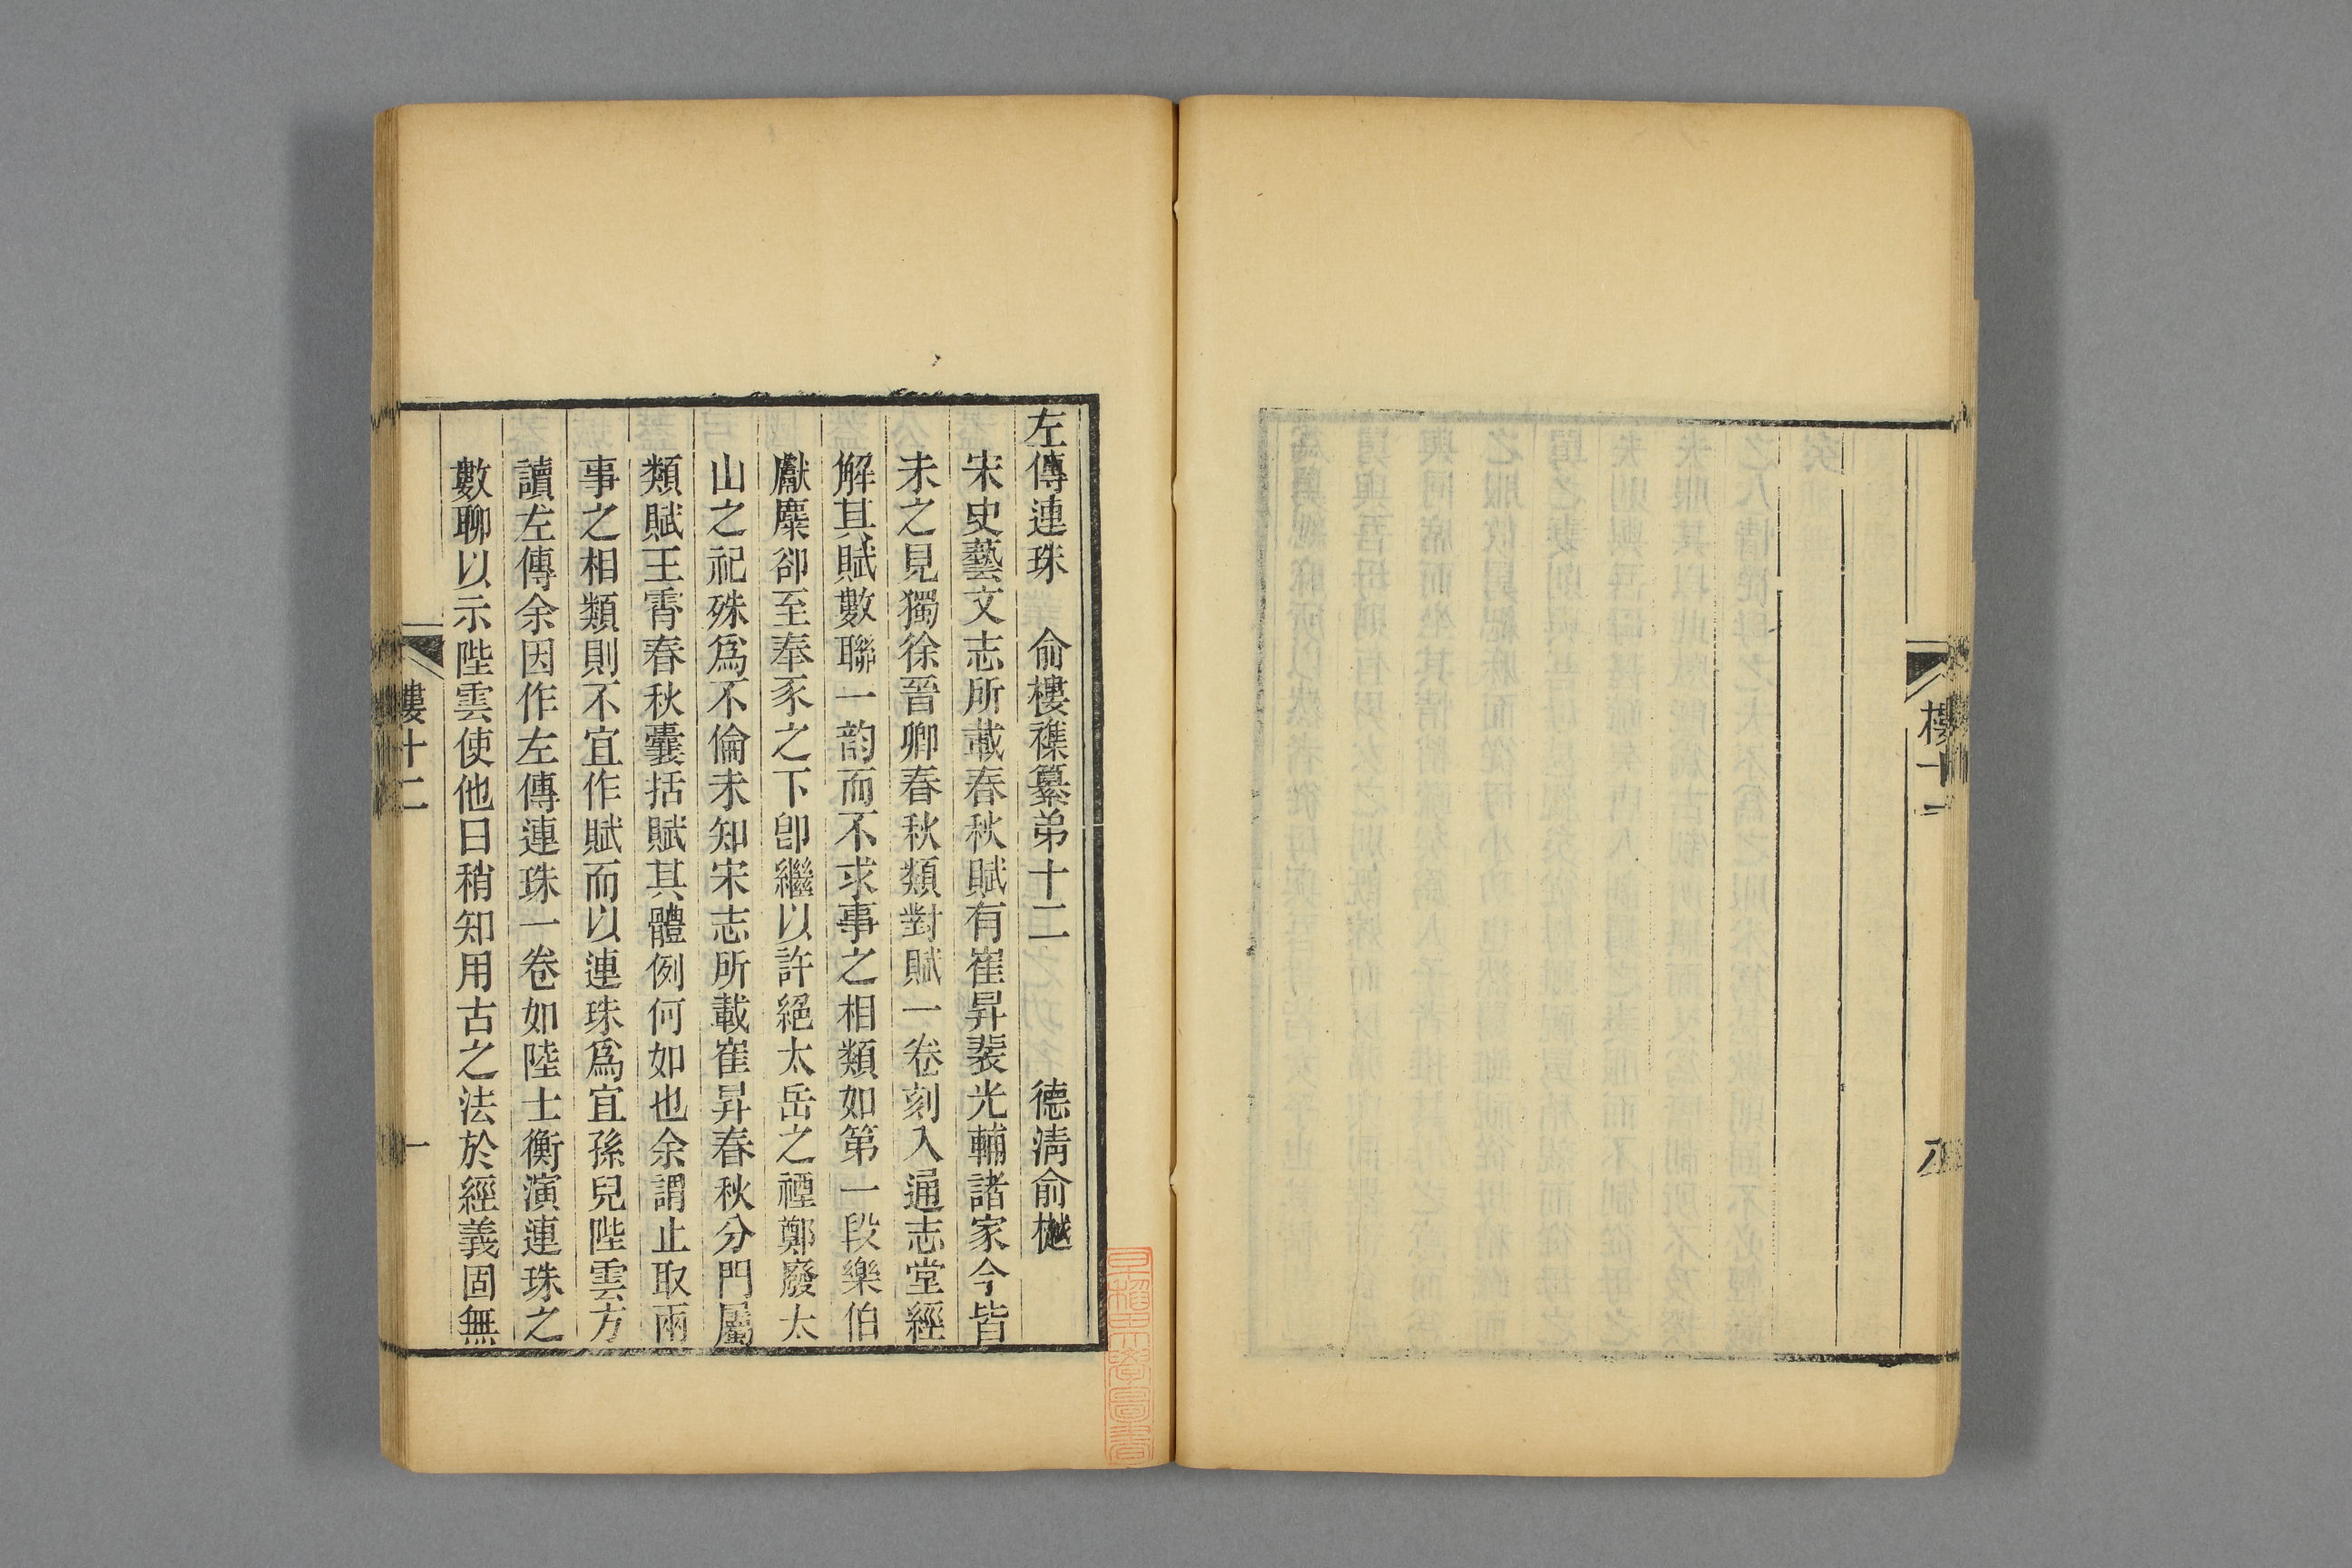 樓十二
八
左傳連珠 俞樓襍纂弟十二 德淸俞樾
宋史藝文志所載春秋賦有崔昇裴光輔諸家今皆
未之見獨徐晉卿春秋類對賦一卷刻入通志堂經
解其賦數聯一韵而不求事之相類如第一段樂伯
獻麋卻至奉豕之下卽繼以許絕太岳之禋鄭廢太
山之祀殊爲不倫未知宋志所載崔昇春秋分門屬
類賦王霄春秋囊括賦其體例何如也余謂止取兩
事之相類則不宜作賦而以連珠爲宜孫兒陛雲方
讀左傳余因作左傳連珠一卷如陸士衡演連珠之
數聊以示陛雲使他日稍知用古之法於經義固無
樓十二
一